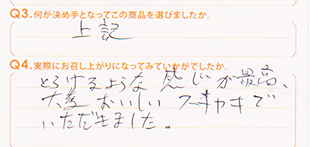 Q3.何が決め手となってこの商品を選びましたか。
上記
Q4.実際にお召し上がりになってみていかがでしたか。
とろけるような感じが最高、
大変おいしいスキヤキで
いただきました。